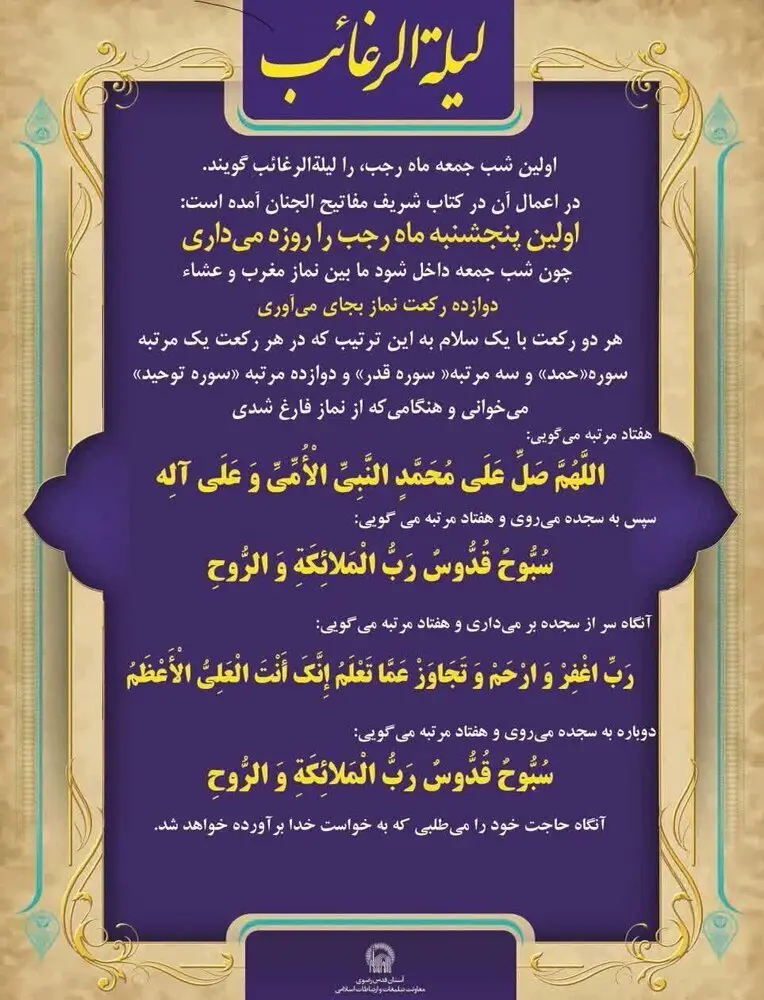 لیلة الرغائب
اولین شب جمعه ماه رجب، را لیلةالرغائب گویند.
در اعمال آن در کتاب شریف مفاتیح الجنان آمده است:
اولین پنجشنبه ماه رجب را روزه می‌داری
چون شب جمعه داخل شود ما بین نماز مغرب و عشاء
دوازده رکعت نماز بجای می‌آوری
هر دو رکعت با یک سلام به این ترتیب که در هر رکعت یک مرتبه
سوره«حمد» و سه مرتبه« سوره قدر» و دوازده مرتبه «سوره توحید»
می‌خوانی و هنگامی‌که از نماز فارغ شدی
هفتاد مرتبه می‌گویی:
اللَّهُمَّ صَلِّ عَلَى مُحَمَّدٍ النَّبِيِّ الْأُمِّيِّ وَ عَلَى آلِهِ
سپس به سجده می‌روی و هفتاد مرتبه می گویی:
سُبُّوحٌ قُدُّوسٌ رَبُّ الْمَلائِكَةِ وَ الرُّوحِ
آنگاه سر از سجده بر می‌داری و هفتاد مرتبه می‌گویی:
رَبِّ اغْفِرْ وَ ارْحَمْ وَ تَجَاوَزْ عَمَّا تَعْلَمُ إِنَّکَ أَنْتَ الْعَلِيُّ الْأَعْظَمُ
دوباره به سجده می‌روی و هفتاد مرتبه می‌گویی:
سُبُّوحٌ قُدُّوسٌ رَبُّ الْمَلائِكَةِ وَ الرُّوحِ
آنگاه حاجت خود را می‌طلبی که به خواست خدا برآورده خواهد شد.
آستان قدس رضوی
معاونت تبلیغات و ارتباطات اسلامی